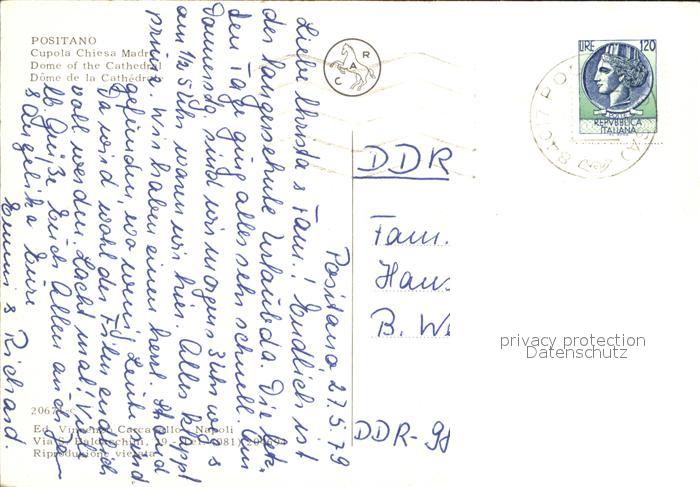 POSITANO
Cupola Chiesa Madre
Dome of the Cathedral
Dôme de la Cathédrale
R
A
C
LIRE 120
POSTE
REPVBBLICA
ITALIANA
84017 PO
DDR
Fam.
Hans
B. We
DDR-98
privacy protection
Datenschutz
Positano 27.5.79
Liebe Christa & Fam.! Endlich ist
der langersehnte Urlaub da. Die letz-
ten Tage ging alles sehr schnell. Am
Donnerstg. sind wir morgens 3 Uhr los &
um 1/2 5 Uhr waren wir hier. Alles klappt
prima wir haben einen herrl. Strand
gefunden, wo wenig Leute sind.
Ja wird wohl der Film endlich
voll werden. Lacht mal! Viele
lb Grüße Euch Allen auch von
& Angelika Eure
Emmi & Richard.
2067
Ed. Vincenzo Carcavallo - Napoli
Via S. Baldacchini, 29 - Tel. (081)
Riproduzione vietata